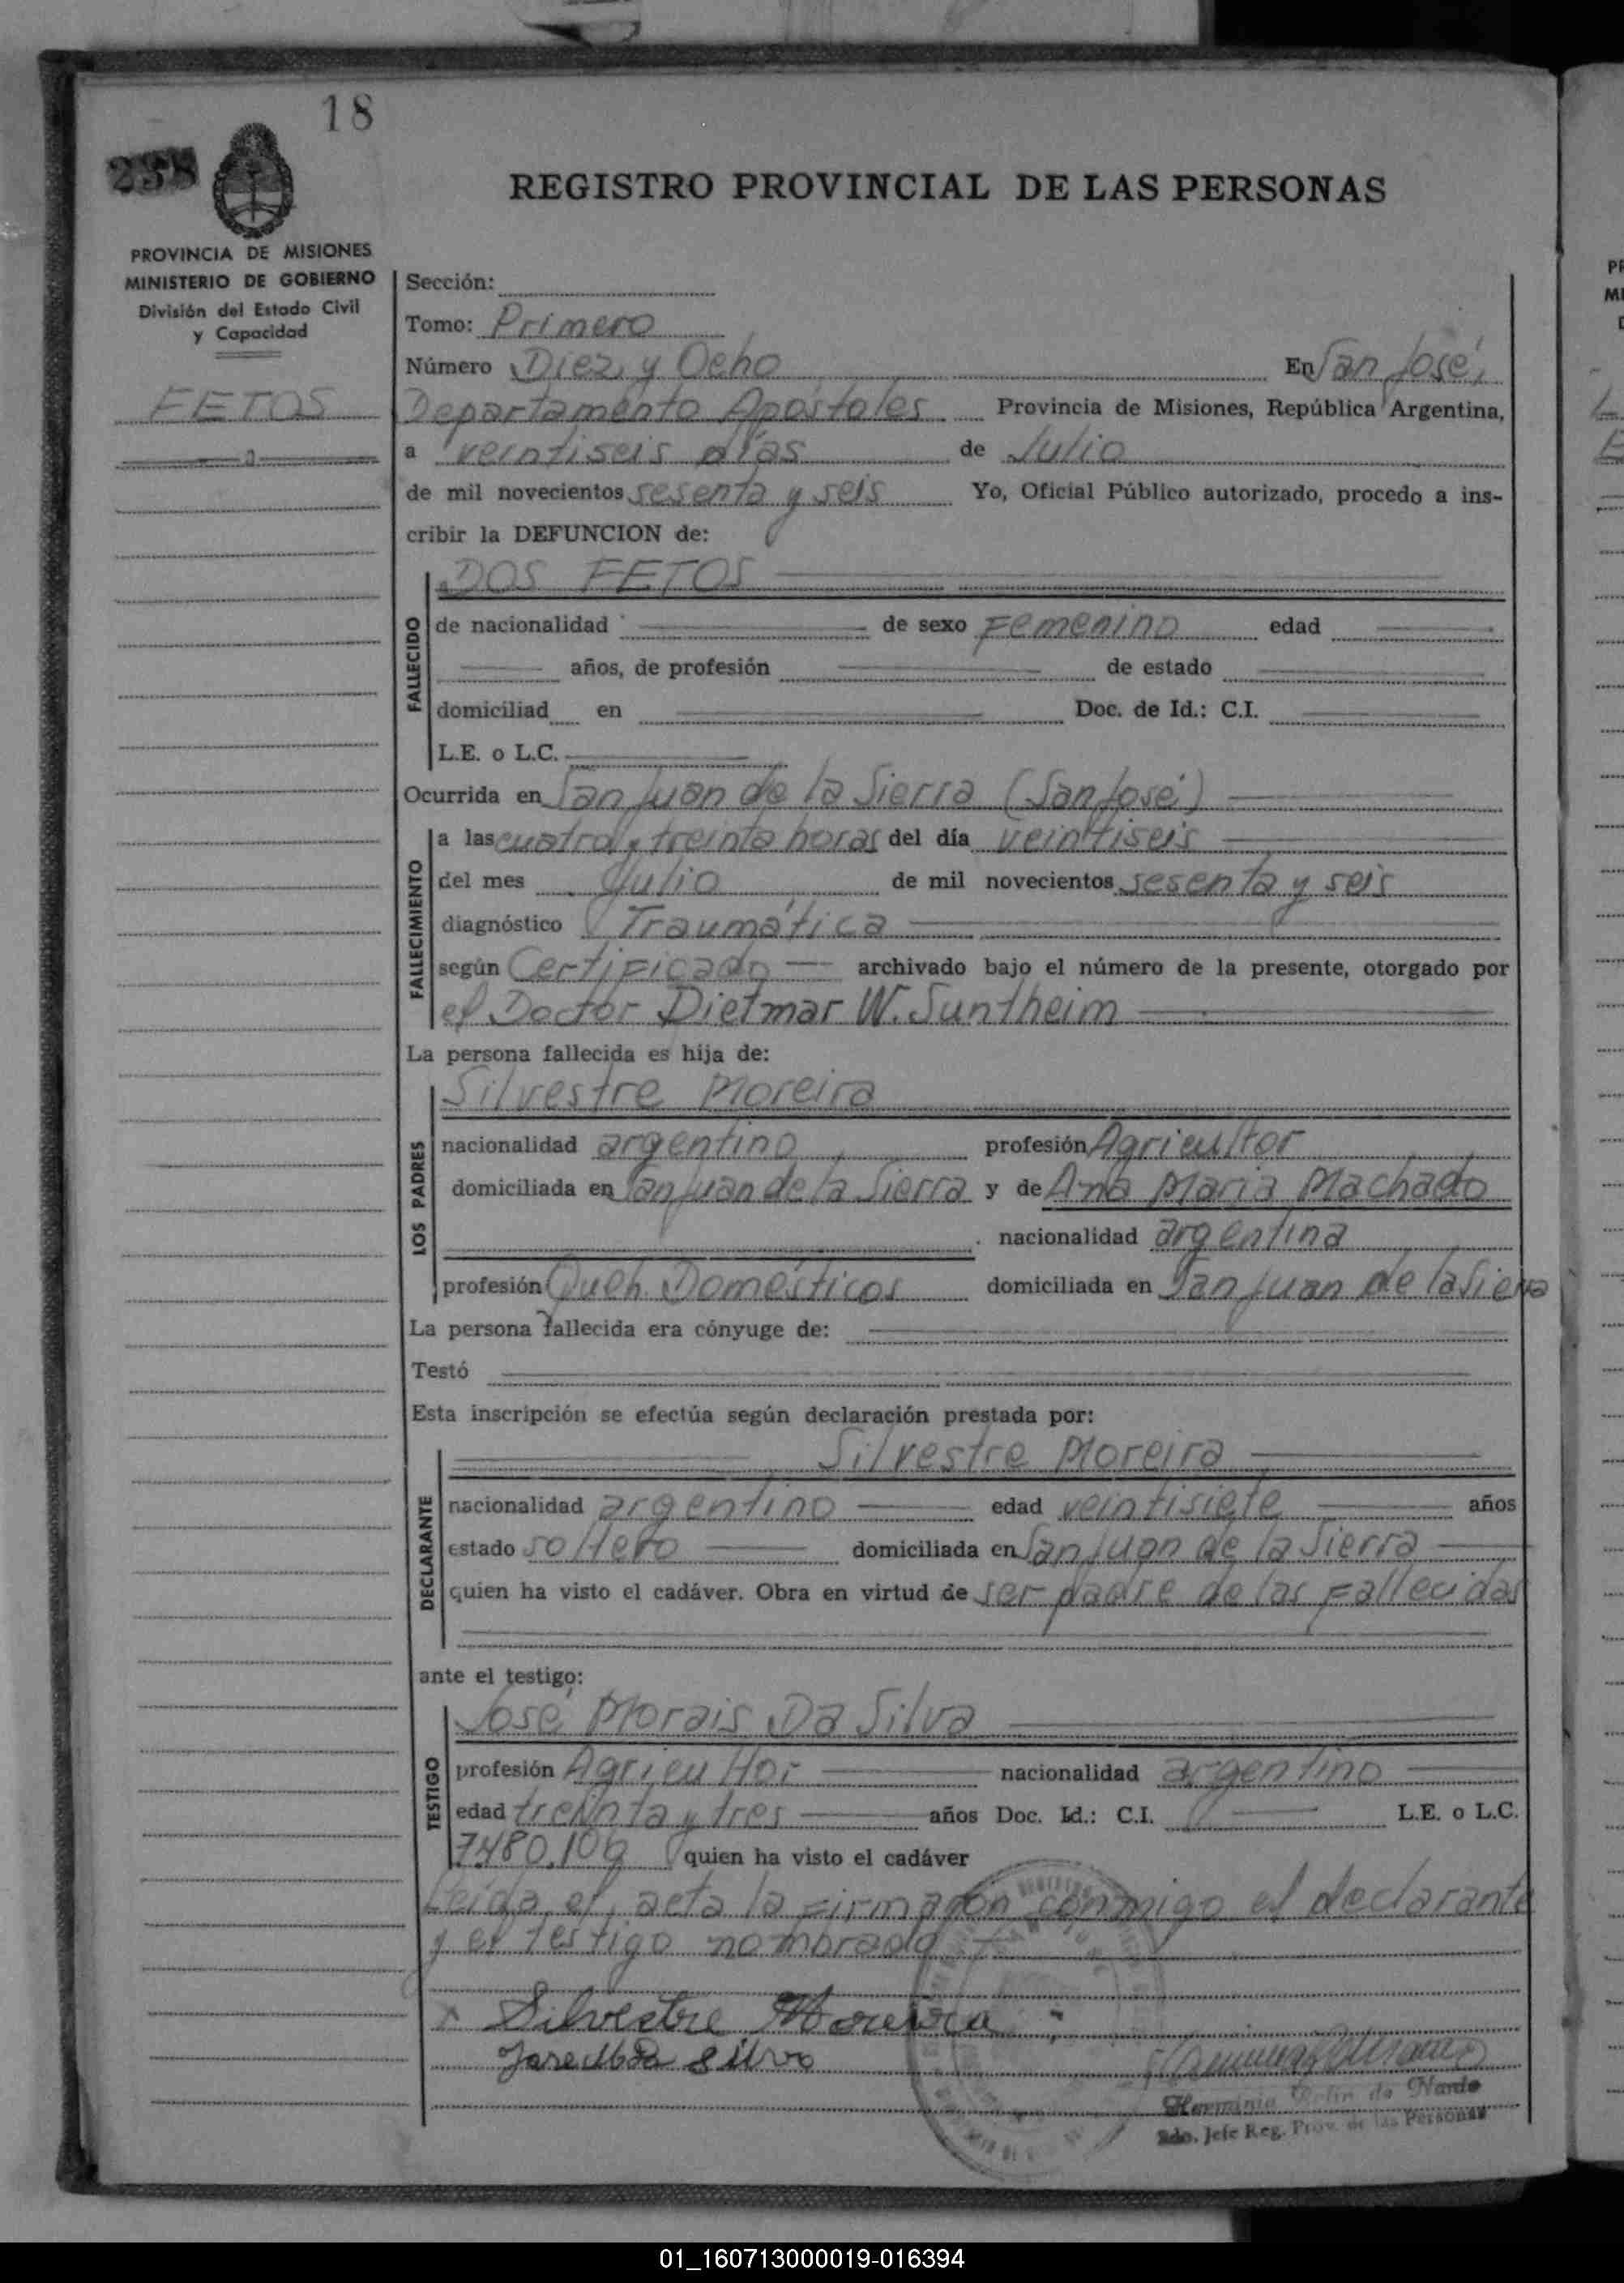 18
238
REGISTRO PROVINCIAL DE LAS PERSONAS
PROVINCIA DE MISIONES
MINISTERIO DE GOBIERNO
División del Estado Civil
y Capacidad
FETOS
Sección:
Tomo: Primero
Número Diez y Ocho En San José,
Departamento Apóstoles Provincia de Misiones, República Argentina,
a veintiseis días de Julio
de mil novecientos sesenta y seis Yo, Oficial Público autorizado, procedo a ins-
cribir la DEFUNCION de:
FALLECIDO
DOS FETOS
de nacionalidad de sexo Femenino edad
años, de profesión de estado
domiciliad en Doc. de Id.: C.I.
L.E. o L.C.
Ocurrida en San Juan de la Sierra (San José)
FALLECIMIENTO
a las cuatro y treinta horas del día veintiseis
del mes Julio de mil novecientos sesenta y seis
diagnóstico Traumática
según Certificado archivado bajo el número de la presente, otorgado por
el Doctor Dietmar W. Suntheim
La persona fallecida es hija de:
LOS PADRES
Silvestre Moreira
nacionalidad argentino profesión Agricultor
domiciliada en San Juan de la Sierra y de Ana Maria Machado
nacionalidad argentina
profesión Queh. Domésticos domiciliada en San Juan de la Sierra
La persona fallecida era cónyuge de:
Testó
Esta inscripción se efectúa según declaración prestada por:
DECLARANTE
Silvestre Moreira
nacionalidad argentino edad veintisiete años
estado soltero domiciliada en San Juan de la Sierra
quien ha visto el cadáver. Obra en virtud de ser padre de las fallecidas
ante el testigo:
TESTIGO
José Morais Da Silva
profesión Agricultor nacionalidad argentino
edad treinta y tres años Doc. Id.: C.I. L.E. o L.C.
7.480.109 quien ha visto el cadáver
Leída el acta la firmaron conmigo el declarante
y el testigo nombrado
x Silvestre Moreira
Jose Silva
Herminia de Nardo
Jefe Reg. Prov. de las Personas
01_160713000019-016394